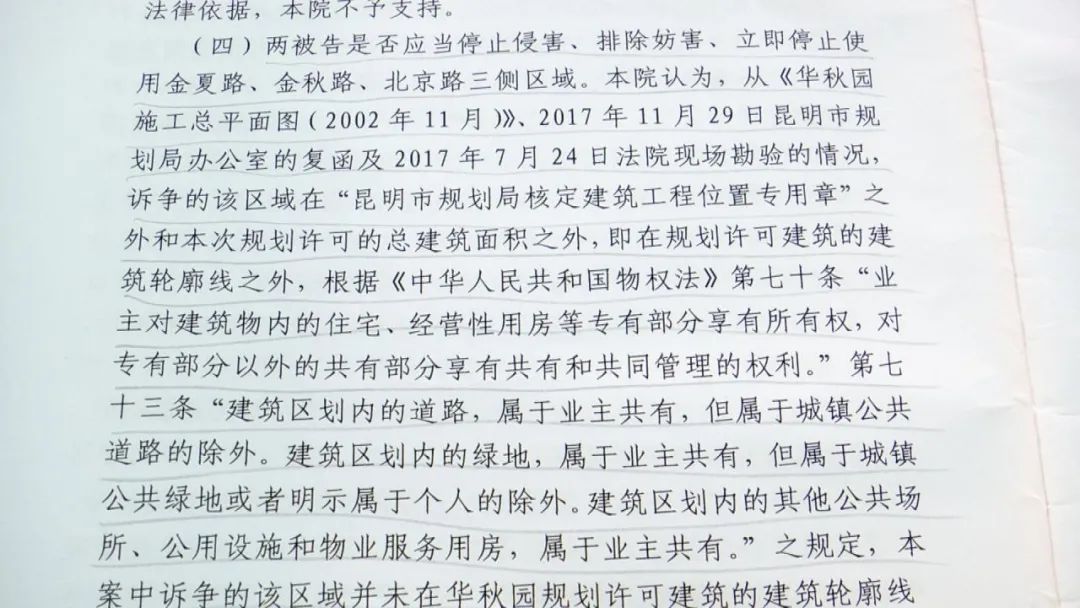 法律依据，本院不予支持。
（四）两被告是否应当停止侵害、排除妨害、立即停止使
用金夏路、金秋路、北京路三侧区域。本院认为，从《华秋园
施工总平面图（2002 年 11 月）》、2017 年 11 月 29 日昆明市规
划局办公室的复函及 2017 年 7 月 24 日法院现场勘验的情况，
诉争的该区域在“昆明市规划局核定建筑工程位置专用章”之
外和本次规划许可的总建筑面积之外，即在规划许可建筑的建
筑轮廓线之外，根据《中华人民共和国物权法》第七十条“业
主对建筑物内的住宅、经营性用房等专有部分享有所有权，对
专有部分以外的共有部分享有共有和共同管理的权利。”第七
十三条“建筑区划内的道路，属于业主共有，但属于城镇公共
道路的除外。建筑区划内的绿地，属于业主共有，但属于城镇
公共绿地或者明示属于个人的除外。建筑区划内的其他公共场
所、公用设施和物业服务用房，属于业主共有。”之规定，本
案中诉争的该区域并未在华秋园规划许可建筑的建筑轮廓线